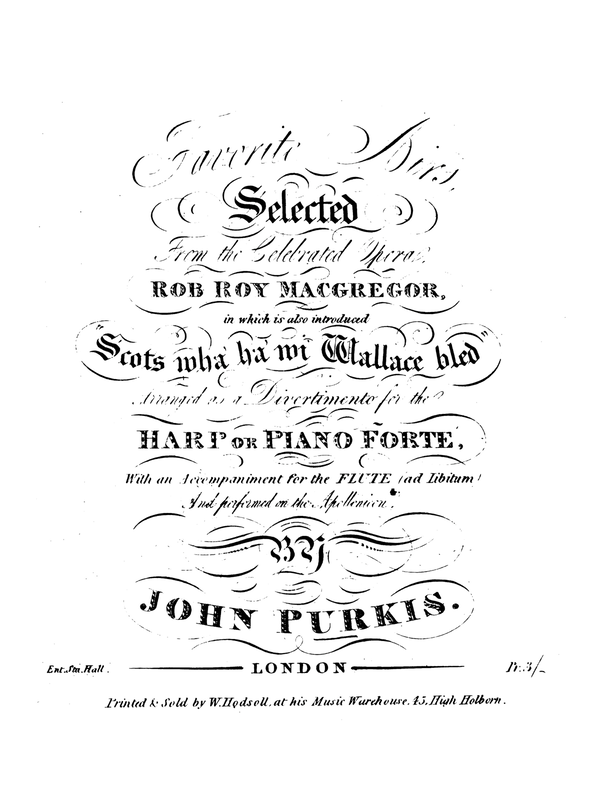 Favorite Airs,
Selected
From the Celebrated Opera,
ROB ROY MACGREGOR,
in which is also introduced
"Scots wha' ha' wi' Wallace bled"
Arranged as a Divertimento for the
HARP OR PIANO FORTE,
With an Accompaniment for the FLUTE (ad libitum)
And performed on the Apollonicon,
BY
JOHN PURKIS.
Ent. Sta. Hall.
LONDON
Pr. 3/-
Printed & Sold by W. Hodsoll, at his Music Warehouse, 45, High Holborn.